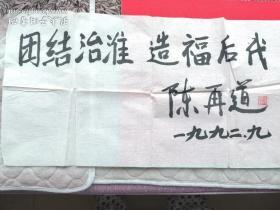 团结治淮 造福后代
陈再道
一九九二.九